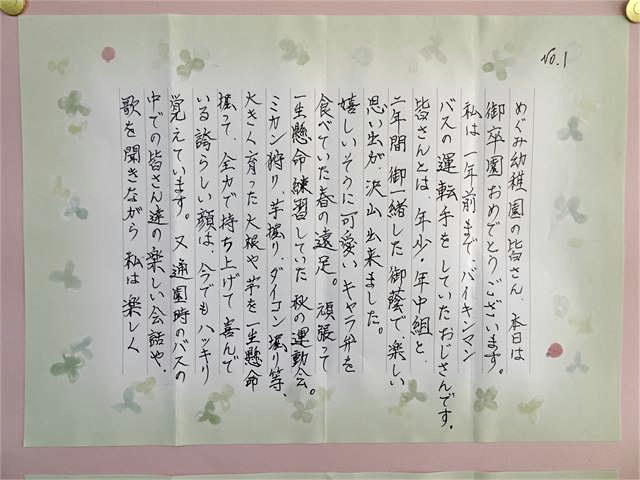 No.1
めぐみ幼稚園の皆さん、本日は
御卒園おめでとうございます。
私は一年前まで、バイキンマン
バスの運転手をしていたおじさんです。
皆さんとは、年少・年中組と、
二年間御一緒した御蔭で、楽しい
思い出が、沢山出来ました。
嬉しいそうに可愛いキャラ弁を
食べていた春の遠足。頑張って
一生懸命練習していた秋の運動会。
ミカン狩り、芋掘り、ダイコン掘り等、
大きく育った大根や芋を一生懸命
掘って、全力で持ち上げて喜んで
いる誇らしい顔は、今でもハッキリ
覚えています。又通園時のバスの
中での皆さん達の楽しい会話や、
歌を聞きながら私は楽しく